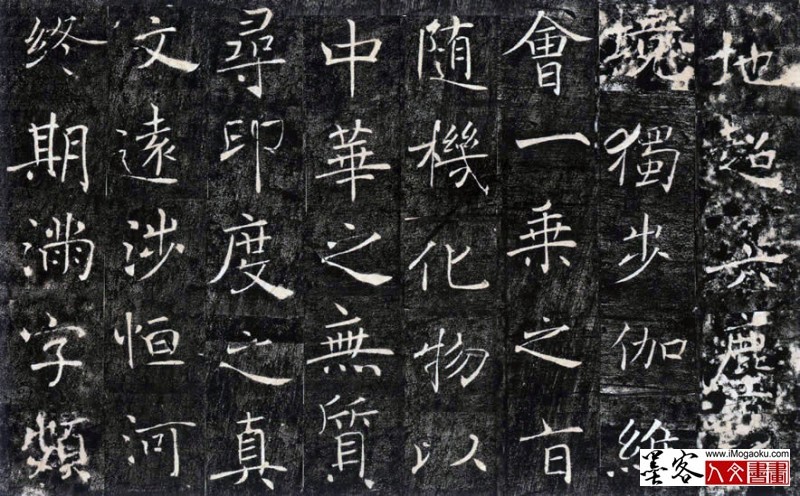 地超六塵
境獨步伽維
會一乗之旨
随機化物以
中華之無質
尋印度之真
文遠涉恒河
終期滿字頻
墨客
www.iMogaoku.com
人文書畫